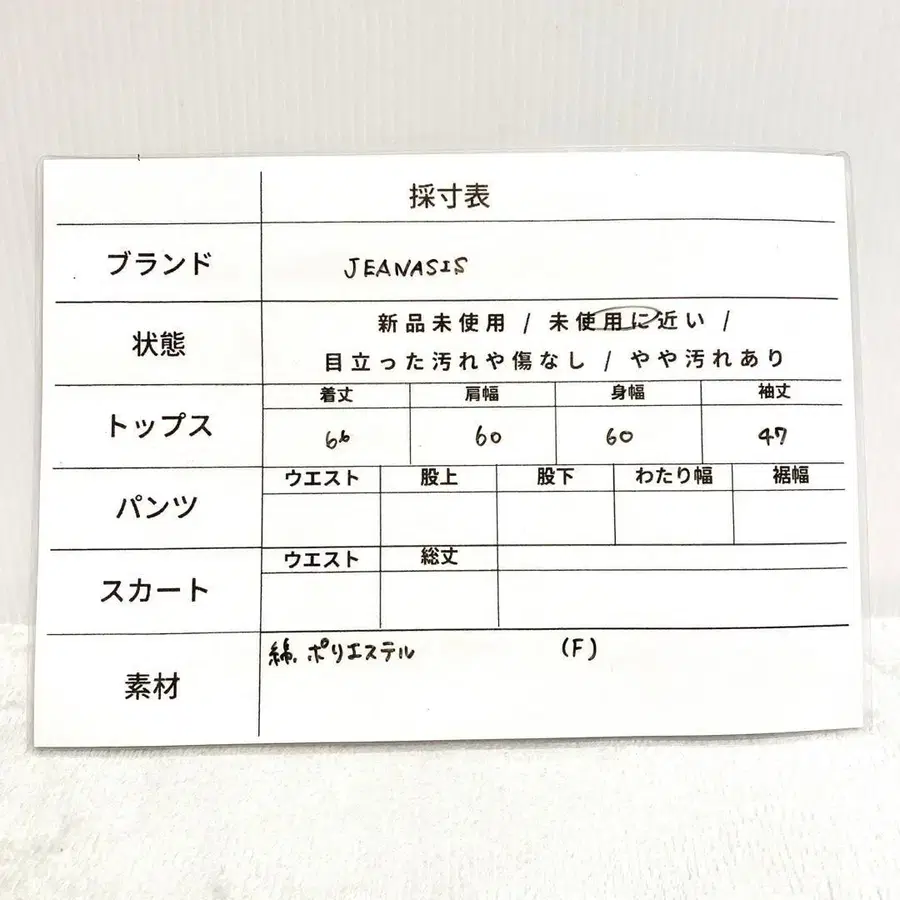 採寸表
ブランド JEANASIS
状態 新品未使用 / 未使用に近い /
目立った汚れや傷なし / やや汚れあり
トップス 着丈 肩幅 身幅 袖丈
66 60 60 47
パンツ ウエスト 股上 股下 わたり幅 裾幅
スカート ウエスト 総丈
素材 綿、ポリエステル (F)